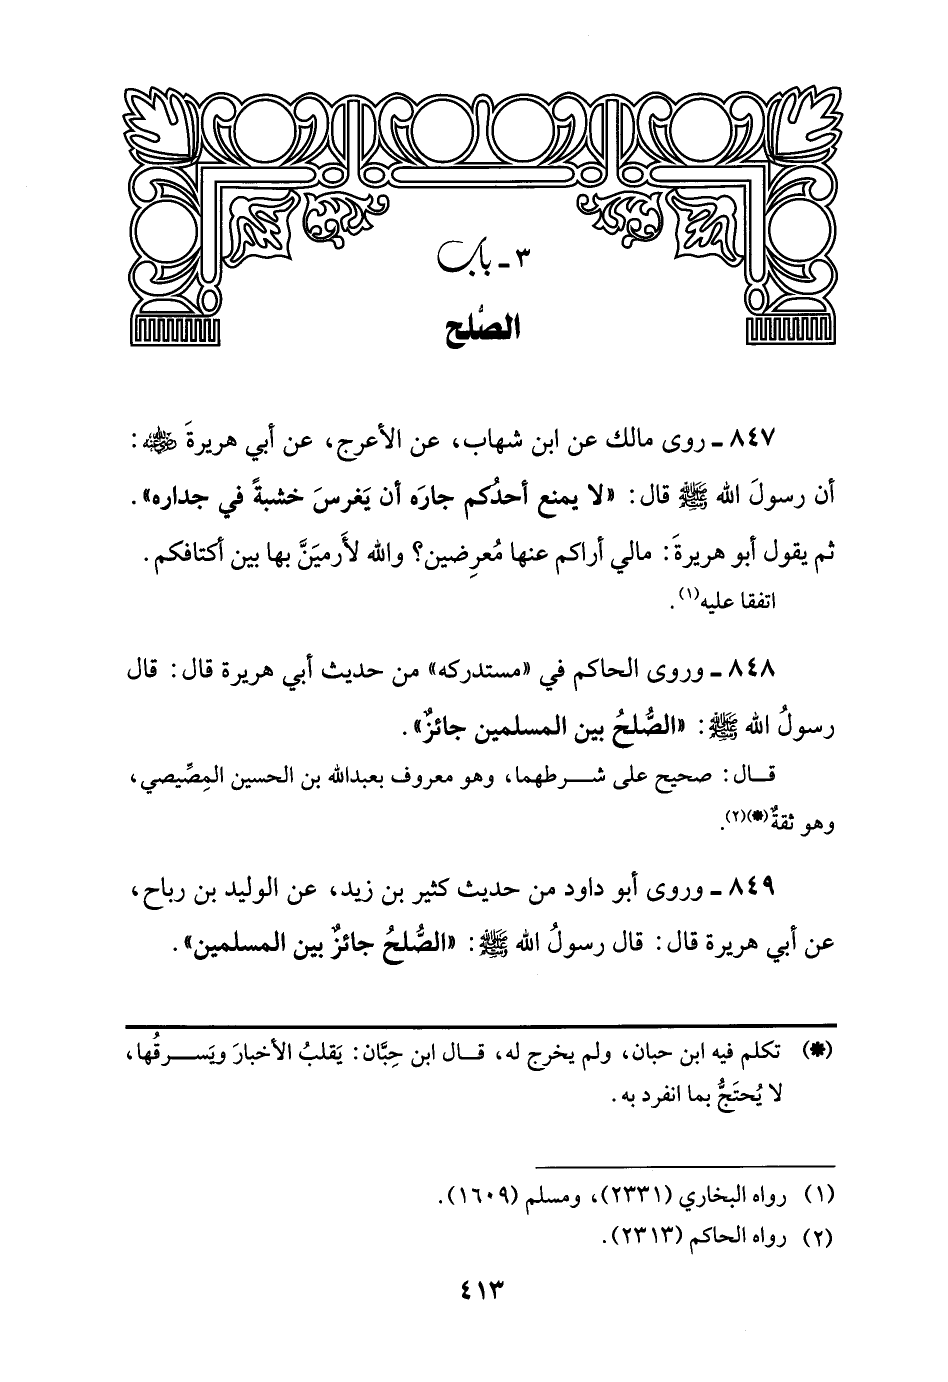 ٣ ـ باب
الصُّلح
٨٤٧ ـ روى مالك عن ابن شهاب، عن الأعرج، عن أبي هريرةَ رضي الله عنه :
أن رسولَ الله ﷺ قال: «لا يمنع أحدُكم جارَه أن يَغرسَ خشبةً في جداره».
ثم يقول أبو هريرةَ: مالي أراكم عنها مُعرِضين؟ والله لأَرميَنَّ بها بين أكتافكم.
اتفقا عليه(١).
٨٤٨ ـ وروى الحاكم في «مستدركه» من حديث أبي هريرة قال: قال
رسولُ الله ﷺ: «الصُّلحُ بين المسلمين جائزٌ».
قال: صحيح على شرطهما، وهو معروف بعبدالله بن الحسين المِصِّيصي،
وهو ثقةٌ(*)(٢).
٨٤٩ ـ وروى أبو داود من حديث كثير بن زيد، عن الوليد بن رباح،
عن أبي هريرة قال: قال رسولُ الله ﷺ: «الصُّلحُ جائزٌ بين المسلمين».
(*) تكلم فيه ابن حبان، ولم يخرج له، قال ابن حِبَّان: يَقلبُ الأخبارَ ويَسرقُها،
لا يُحتَجُّ بما انفرد به.
(١) رواه البخاري (٢٣٣١)، ومسلم (١٦٠٩).
(٢) رواه الحاكم (٢٣١٣).
٤١٣